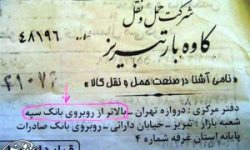 شرکت حمل و نقل
کاوه بار تبریز
۴۸۱۹۶
۴۱۰۷۴
نامی آشنا در صنعت حمل و نقل کالا
دفتر مرکزی: دروازه تهران - بالاتر از روبروی بانک سپه
شعبه بازار: تبریز - خیابان دارائی - روبروی بانک صادرات
پایانه استان غرفه ۴